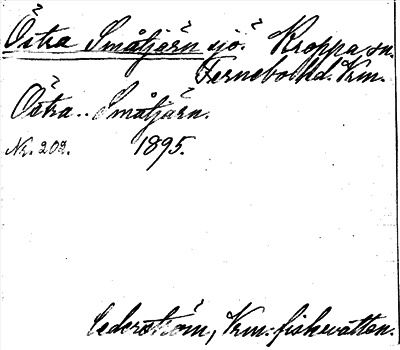 Östra Småtjärn sjö. Kroppa sn.
Fernebo hd. Vrm.
Östra .. Småtjärn.
Nr. 202. 1895.
Cederström, Vrm. fiskevatten.